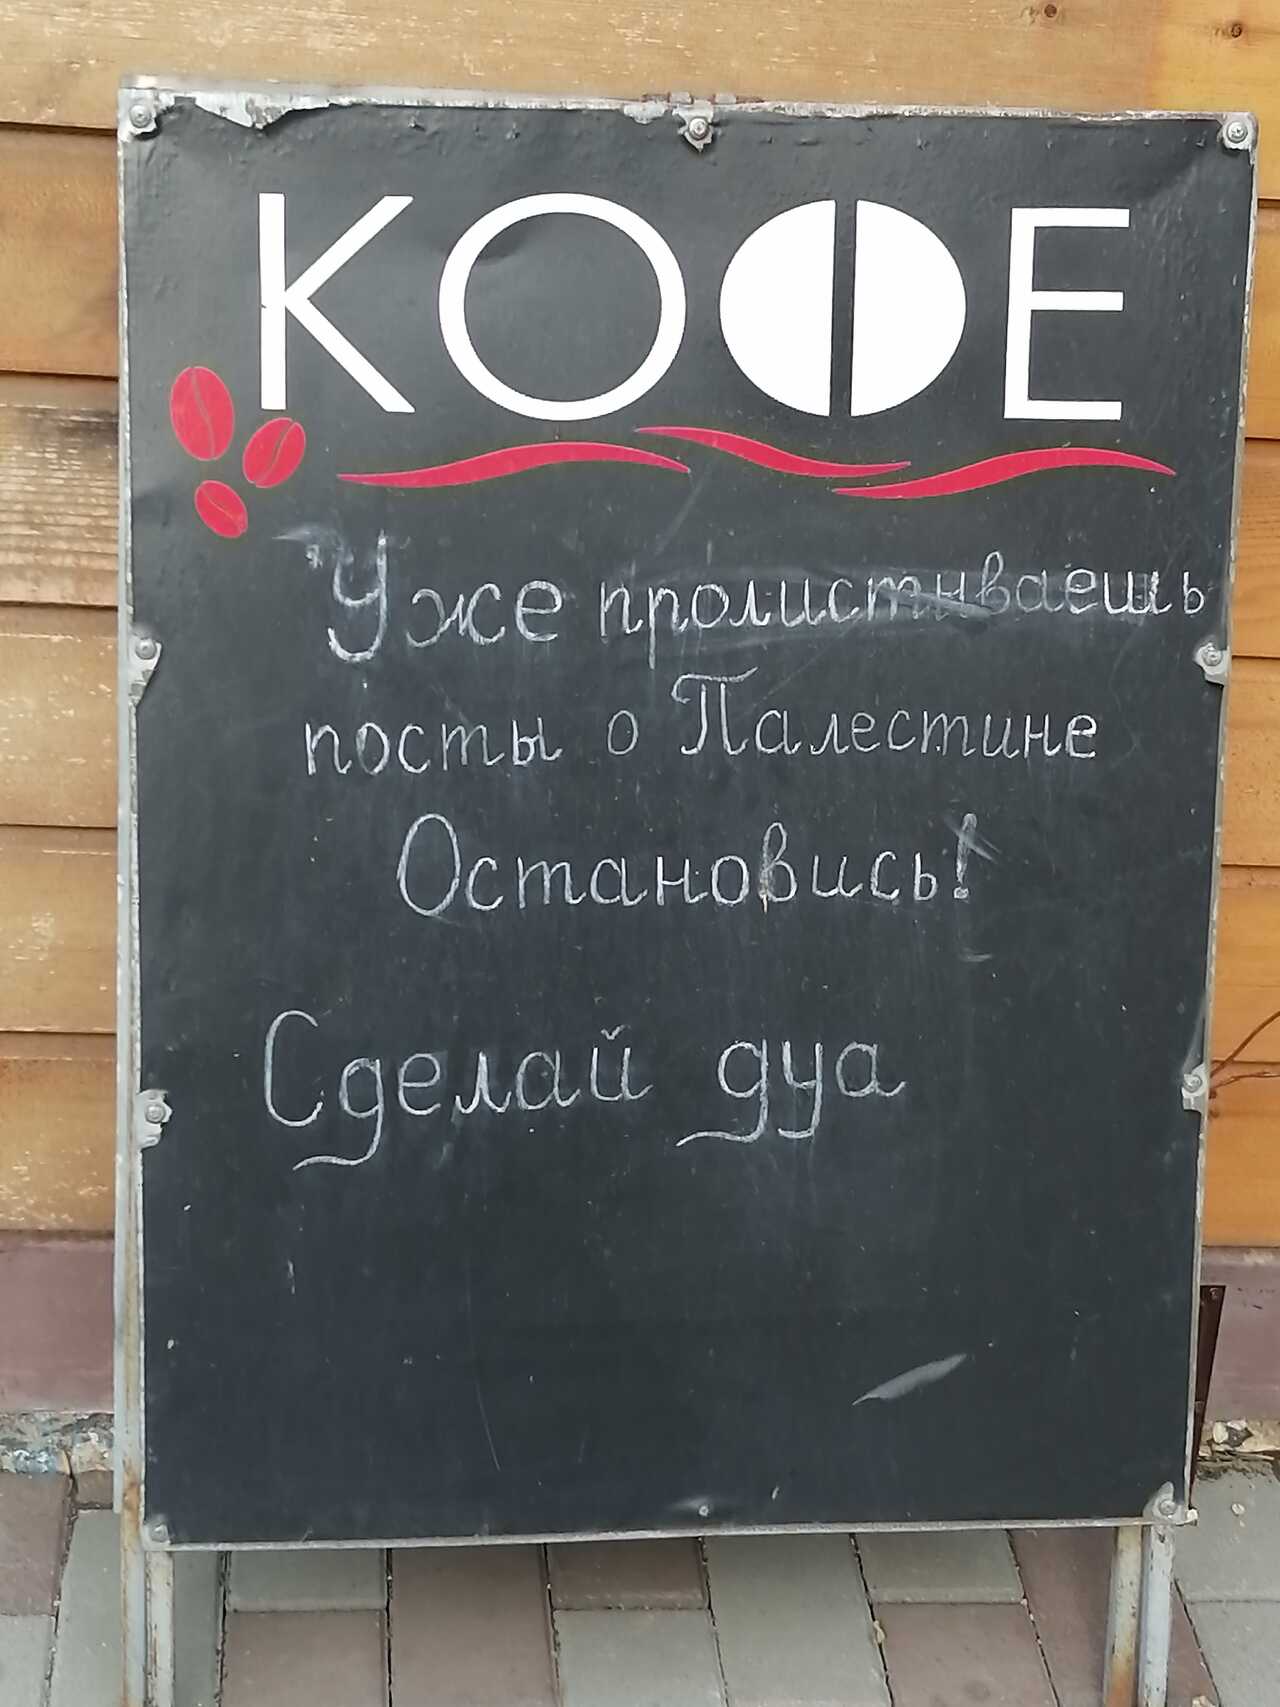 КОФЕ
Уже пролистываешь
посты о Палестине
Остановись!
Сделай дуа